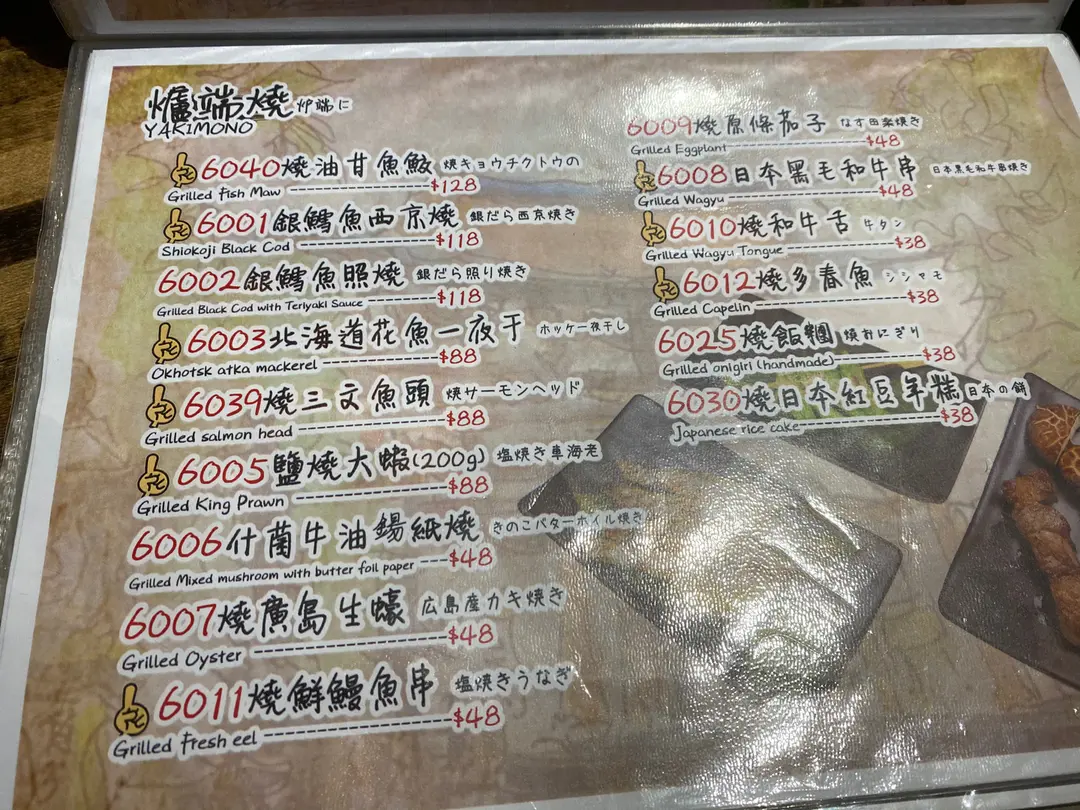 爐端燒 炉端に
YAKIMONO
6040燒油甘魚鮫 焼キョウチクトウの
Grilled fish Maw $128
6001銀鱈魚西京燒 銀だら西京焼き
Shiokoji Black Cod $118
6002銀鱈魚照燒 銀だら照り焼き
Grilled Black Cod with Teriyaki Sauce $118
6003北海道花魚一夜干 ホッケ一夜干し
Okhotsk atka mackerel $88
6039燒三文魚頭 焼サーモンヘッド
Grilled salmon head $88
6005鹽燒大蝦(200g) 塩焼き車海老
Grilled King Prawn $88
6006什菌牛油錫紙燒 きのこバターホイル焼き
Grilled Mixed mushroom with butter foil paper $48
6007燒廣島生蠔 広島産カキ焼き
Grilled Oyster $48
6011燒鮮鰻魚串 塩焼きうなぎ
Grilled fresh eel $48
6009燒原條茄子 なす田楽焼き
Grilled Eggplant $48
6008日本黑毛和牛串 日本黒毛和牛串焼き
Grilled Wagyu $48
6010燒和牛舌 牛タン
Grilled Wagyu Tongue $38
6012燒多春魚 シシャモ
Grilled Capelin $38
6025燒飯糰 焼おにぎり
Grilled onigiri (handmade) $38
6030燒日本紅豆年糕 日本の餅
Japanese rice cake $38